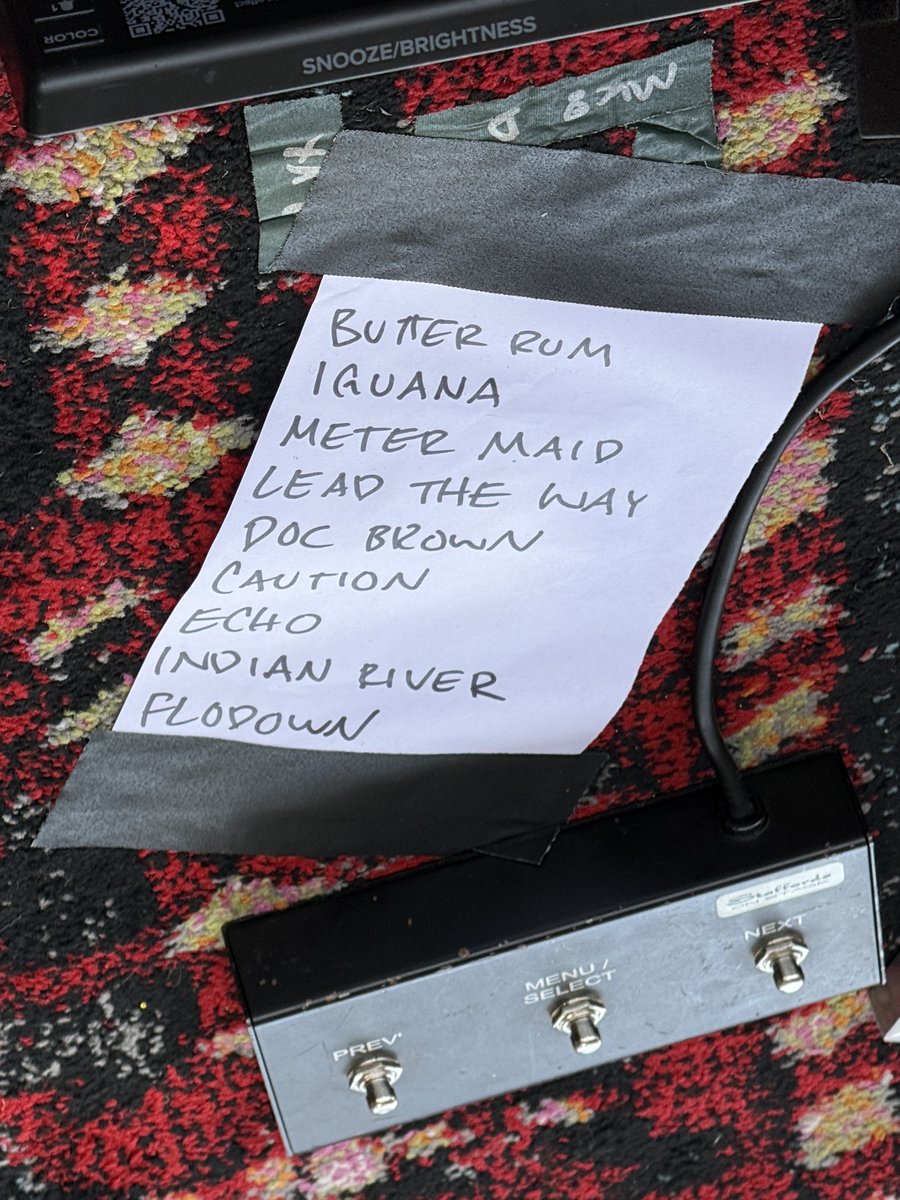 COLOR
SNOOZE/BRIGHTNESS
MK8
BUTTER RUM
IGUANA
METER MAID
LEAD THE WAY
DOC BROWN
CAUTION
ECHO
INDIAN RIVER
FLODOWN
Staffords
ON STAGE
NEXT
MENU /
SELECT
PREV'